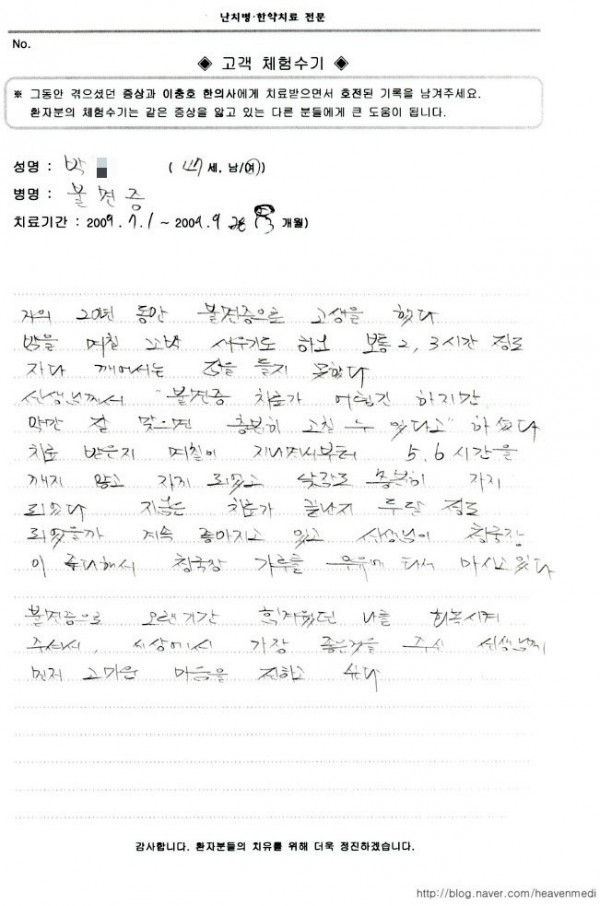 난치병·한약치료 전문
No.
◈ 고객 체험수기 ◈
※ 그동안 겪으셨던 증상과 이충호 한의사에게 치료받으면서 호전된 기록을 남겨주세요.
환자분의 체험수기는 같은 증상을 앓고 있는 다른 분들에게 큰 도움이 됩니다.
성명 : 박 ( 세, 남/여)
병명 : 불면증
치료기간 : 2009.7.1 ~ 2009.9 개월)
거의 20년 동안 불면증으로 고생을 했다
밤을 며칠 꼬박 새우기도 하고 보통 2, 3시간 정도
자다 깨어서는 잠을 들지 못했다
선생님께서 "불면증 치료가 어렵긴 하지만
약만 잘 맞으면 충분히 고칠 수 있다고" 하셨다
치료 받은지 며칠이 지나면서부터 5.6시간을
깨지 않고 자게 되었고 낮잠도 충분히 자게
되었다 지금은 치료가 끝난지 두달 정도
되었을까 계속 좋아지고 있고 선생님이 청국장
이 좋다해서 청국장 가루를 우유에 타서 마시고 있다
불면증으로 오랜기간 힘들었던 나를 회복시켜
주셔서, 세상에서 가장 좋은것을 주신 선생님께
먼저 고마운 마음을 전하고 싶다
감사합니다. 환자분들의 치유를 위해 더욱 정진하겠습니다.
http://blog.naver.com/heavenmedi